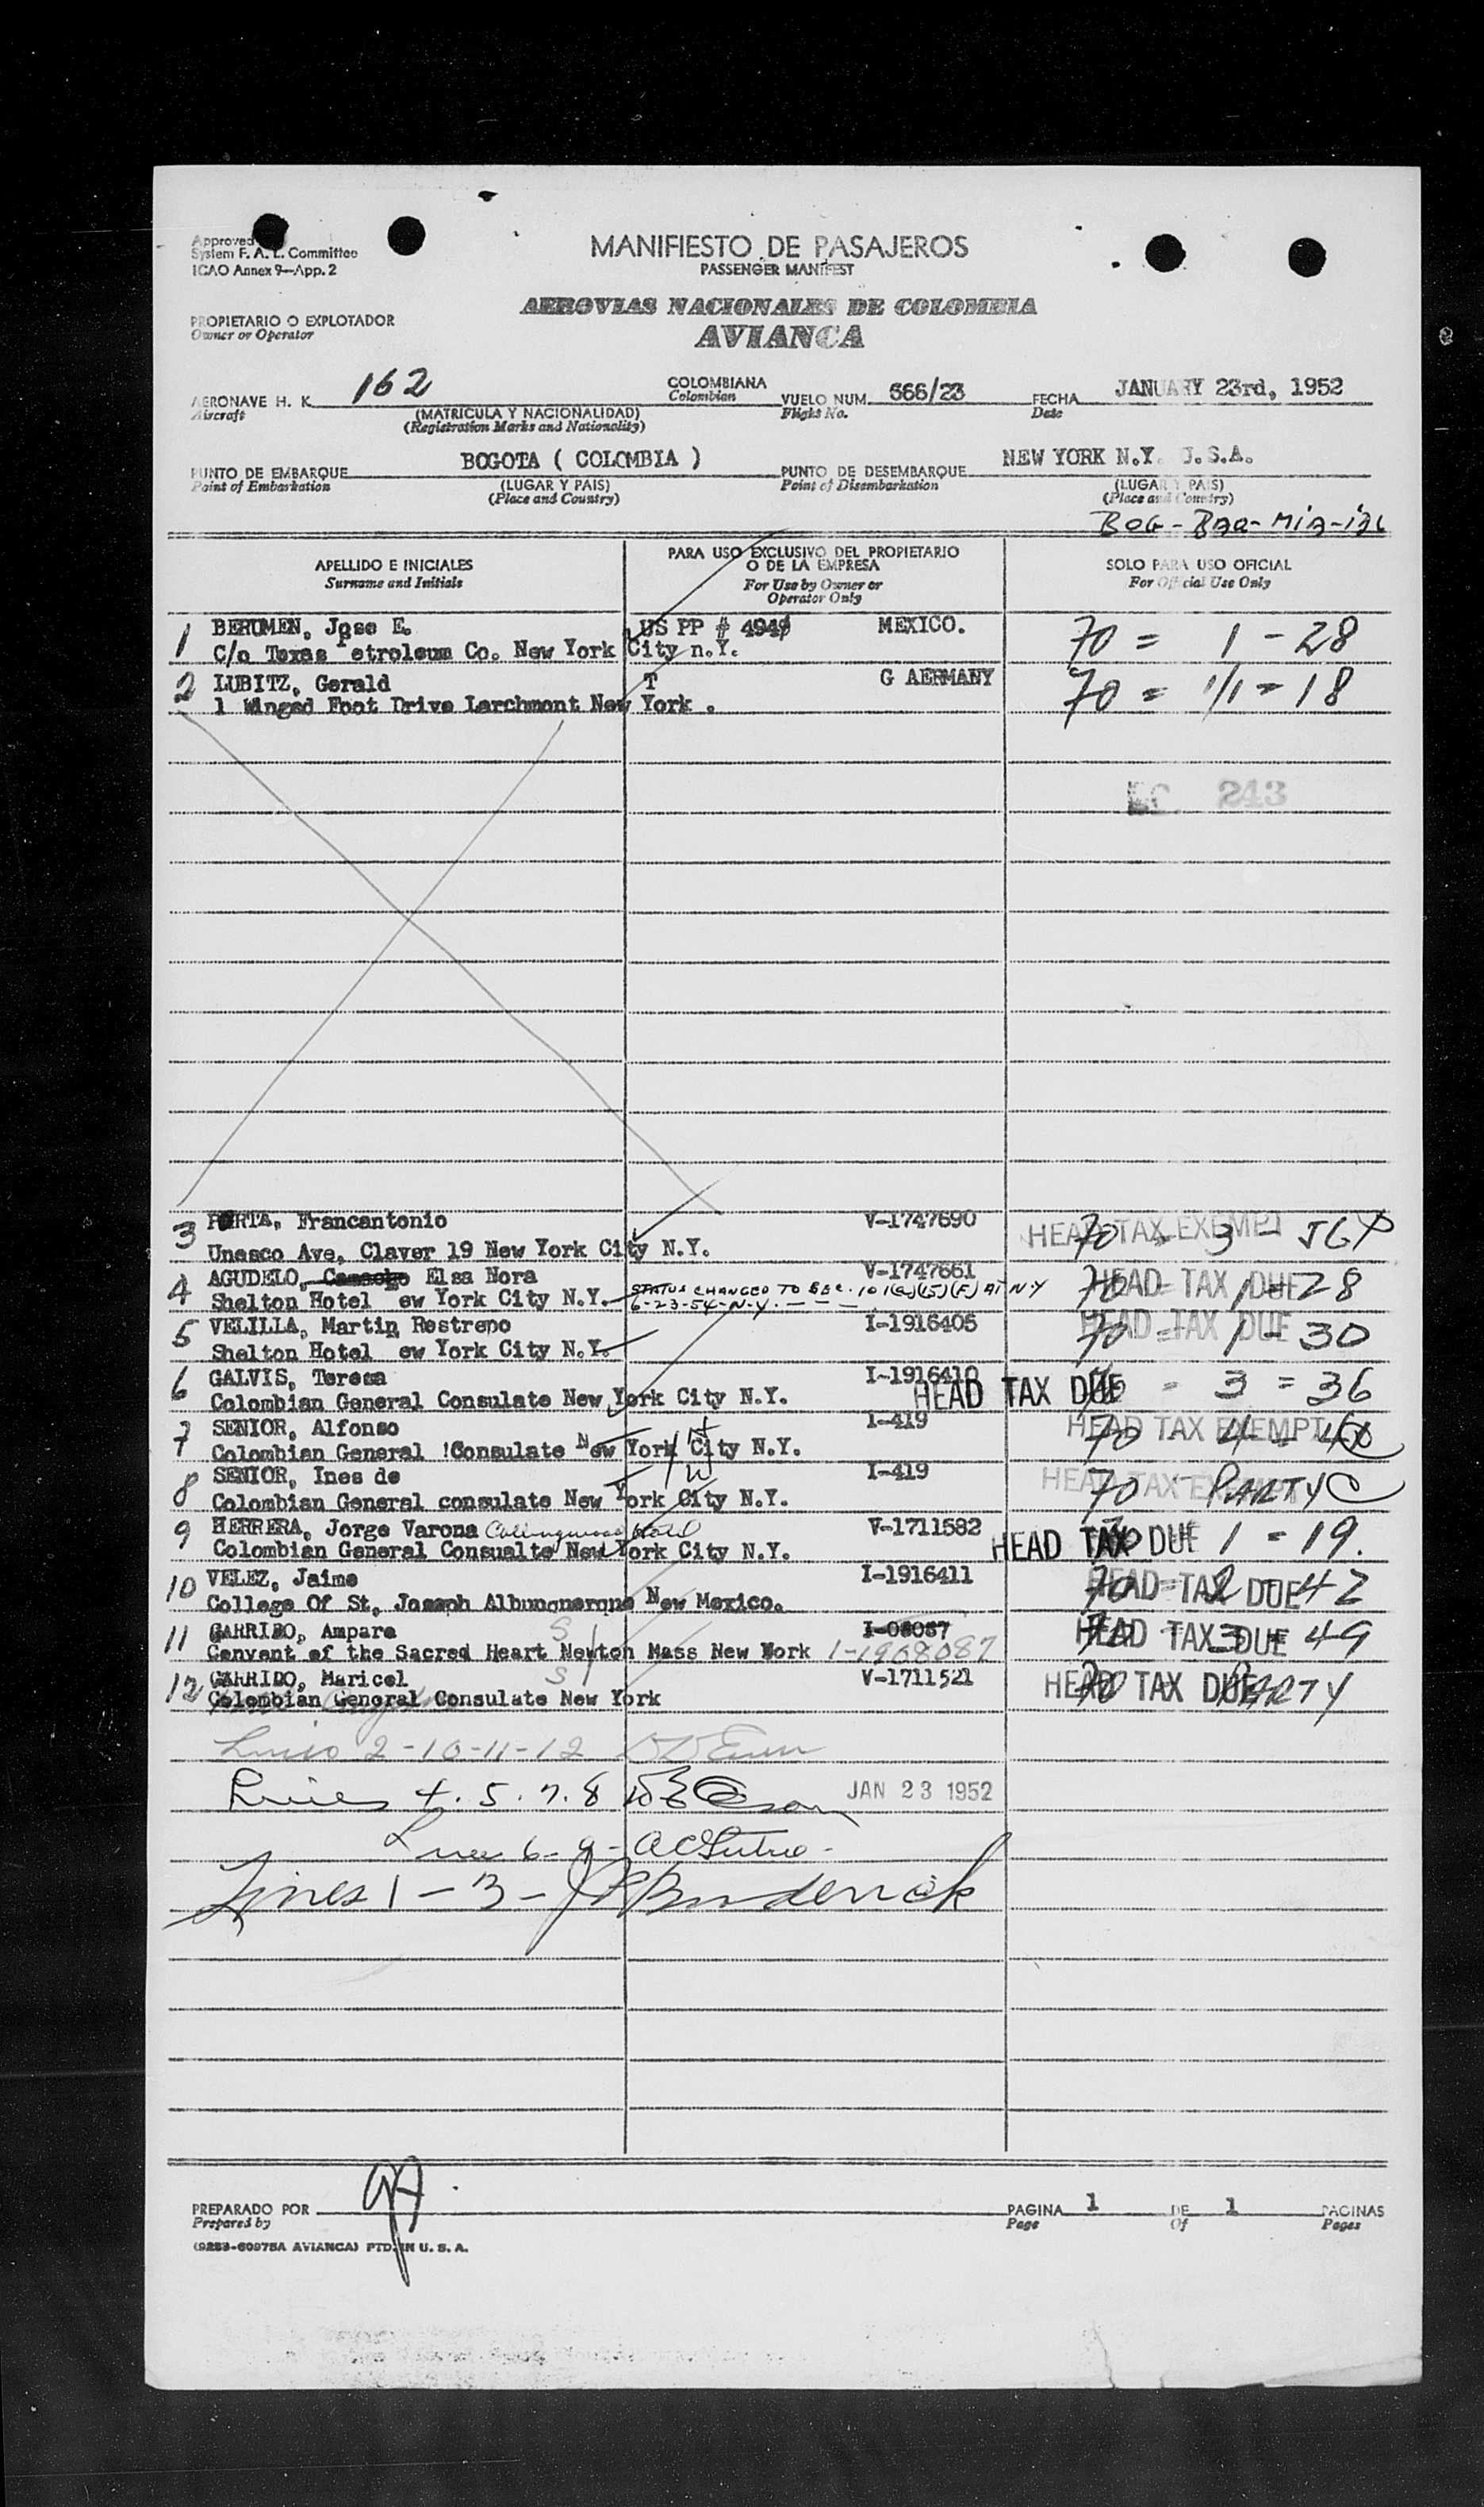 Approved
System F. A. L. Committee
ICAO Annex 9—App. 2
MANIFIESTO DE PASAJEROS
PASSENGER MANIFEST
AEROVIAS NACIONALES DE COLOMBIA
AVIANCA
PROPIETARIO O EXPLOTADOR
Owner or Operator
AERONAVE H. K. 162 COLOMBIANA VUELO NUM. 566/23 FECHA JANUARY 23rd, 1952
Aircraft (MATRICULA Y NACIONALIDAD) Colombian Flight No. Date
(Registration Marks and Nationality)
PUNTO DE EMBARQUE BOGOTA ( COLOMBIA ) PUNTO DE DESEMBARQUE NEW YORK N.Y. U.S.A.
Point of Embarkation (LUGAR Y PAIS) Point of Disembarkation (LUGAR Y PAIS)
(Place and Country) (Place and Country)
BOG - BAQ - MIA - idl
APELLIDO E INICIALES PARA USO EXCLUSIVO DEL PROPIETARIO O DE LA EMPRESA SOLO PARA USO OFICIAL
Surname and Initials For Use by Owner or Operator Only For Official Use Only
1 BERUMEN, Jose E. US PP # 4949 MEXICO. 70 = 1 - 28
C/o Texas Petroleum Co. New York City n.Y.
2 LUBITZ, Gerald T G AERMANY 70 = 1/1 - 18
1 Winged Foot Drive Larchmont New York .
243
3 PORTA, Francantonio V-1747690 HEAD TAX EXEMPT 70 - 3 -
Unesco Ave, Claver 19 New York City N.Y.
4 AGUDELO, Camacho Elsa Nora V-1747661 HEAD TAX DUE 70 = 1 - 28
Shelton Hotel ew York City N.Y. STATUS CHANGED TO SEC. 101(a)(15)(F) AT N-Y
6-23-54-N-Y. - - -
5 VELILLA, Martin Restrepo I-1916405 HEAD TAX DUE 70 = 1 - 30
Shelton Hotel ew York City N.Y.
6 GALVIS, Teresa I-1916410 HEAD TAX DUE 70 - 3 = 36
Colombian General Consulate New York City N.Y.
7 SENIOR, Alfonso I-419 HEAD TAX EXEMPT 70 4 -
Colombian General !Consulate New York City N.Y.
8 SENIOR, Ines de I-419 HEAD TAX EXEMPT 70 PARTY
Colombian General consulate New York City N.Y.
9 HERRERA, Jorge Varona Collingwood Hotel V-1711582 HEAD TAX DUE 70 1 - 19.
Colombian General Consualte New York City N.Y.
10 VELEZ, Jaime I-1916411 HEAD TAX DUE 70 = 2 - 42
College Of St, Joseph Albunonerque New Mexico.
11 GARRIDO, Ampara S I-08087 HEAD TAX DUE 70 - 3 - 49
Convent of the Sacred Heart Newton Mass New Work 1-1908087
12 GARRIDO, Maricel S V-1711521 HEAD TAX DUE 70 PARTY
Colombian General Consulate New York
Lines 2-10-11-12
Lines 4. 5. 7. 8 JAN 23 1952
Lines 6-9-
Lines 1 - 3 - Broderick
PREPARADO POR PAGINA 1 DE 1 PAGINAS
Prepared by Page Of Pages
(9283-60975A AVIANCA) PTD. IN U. S. A.